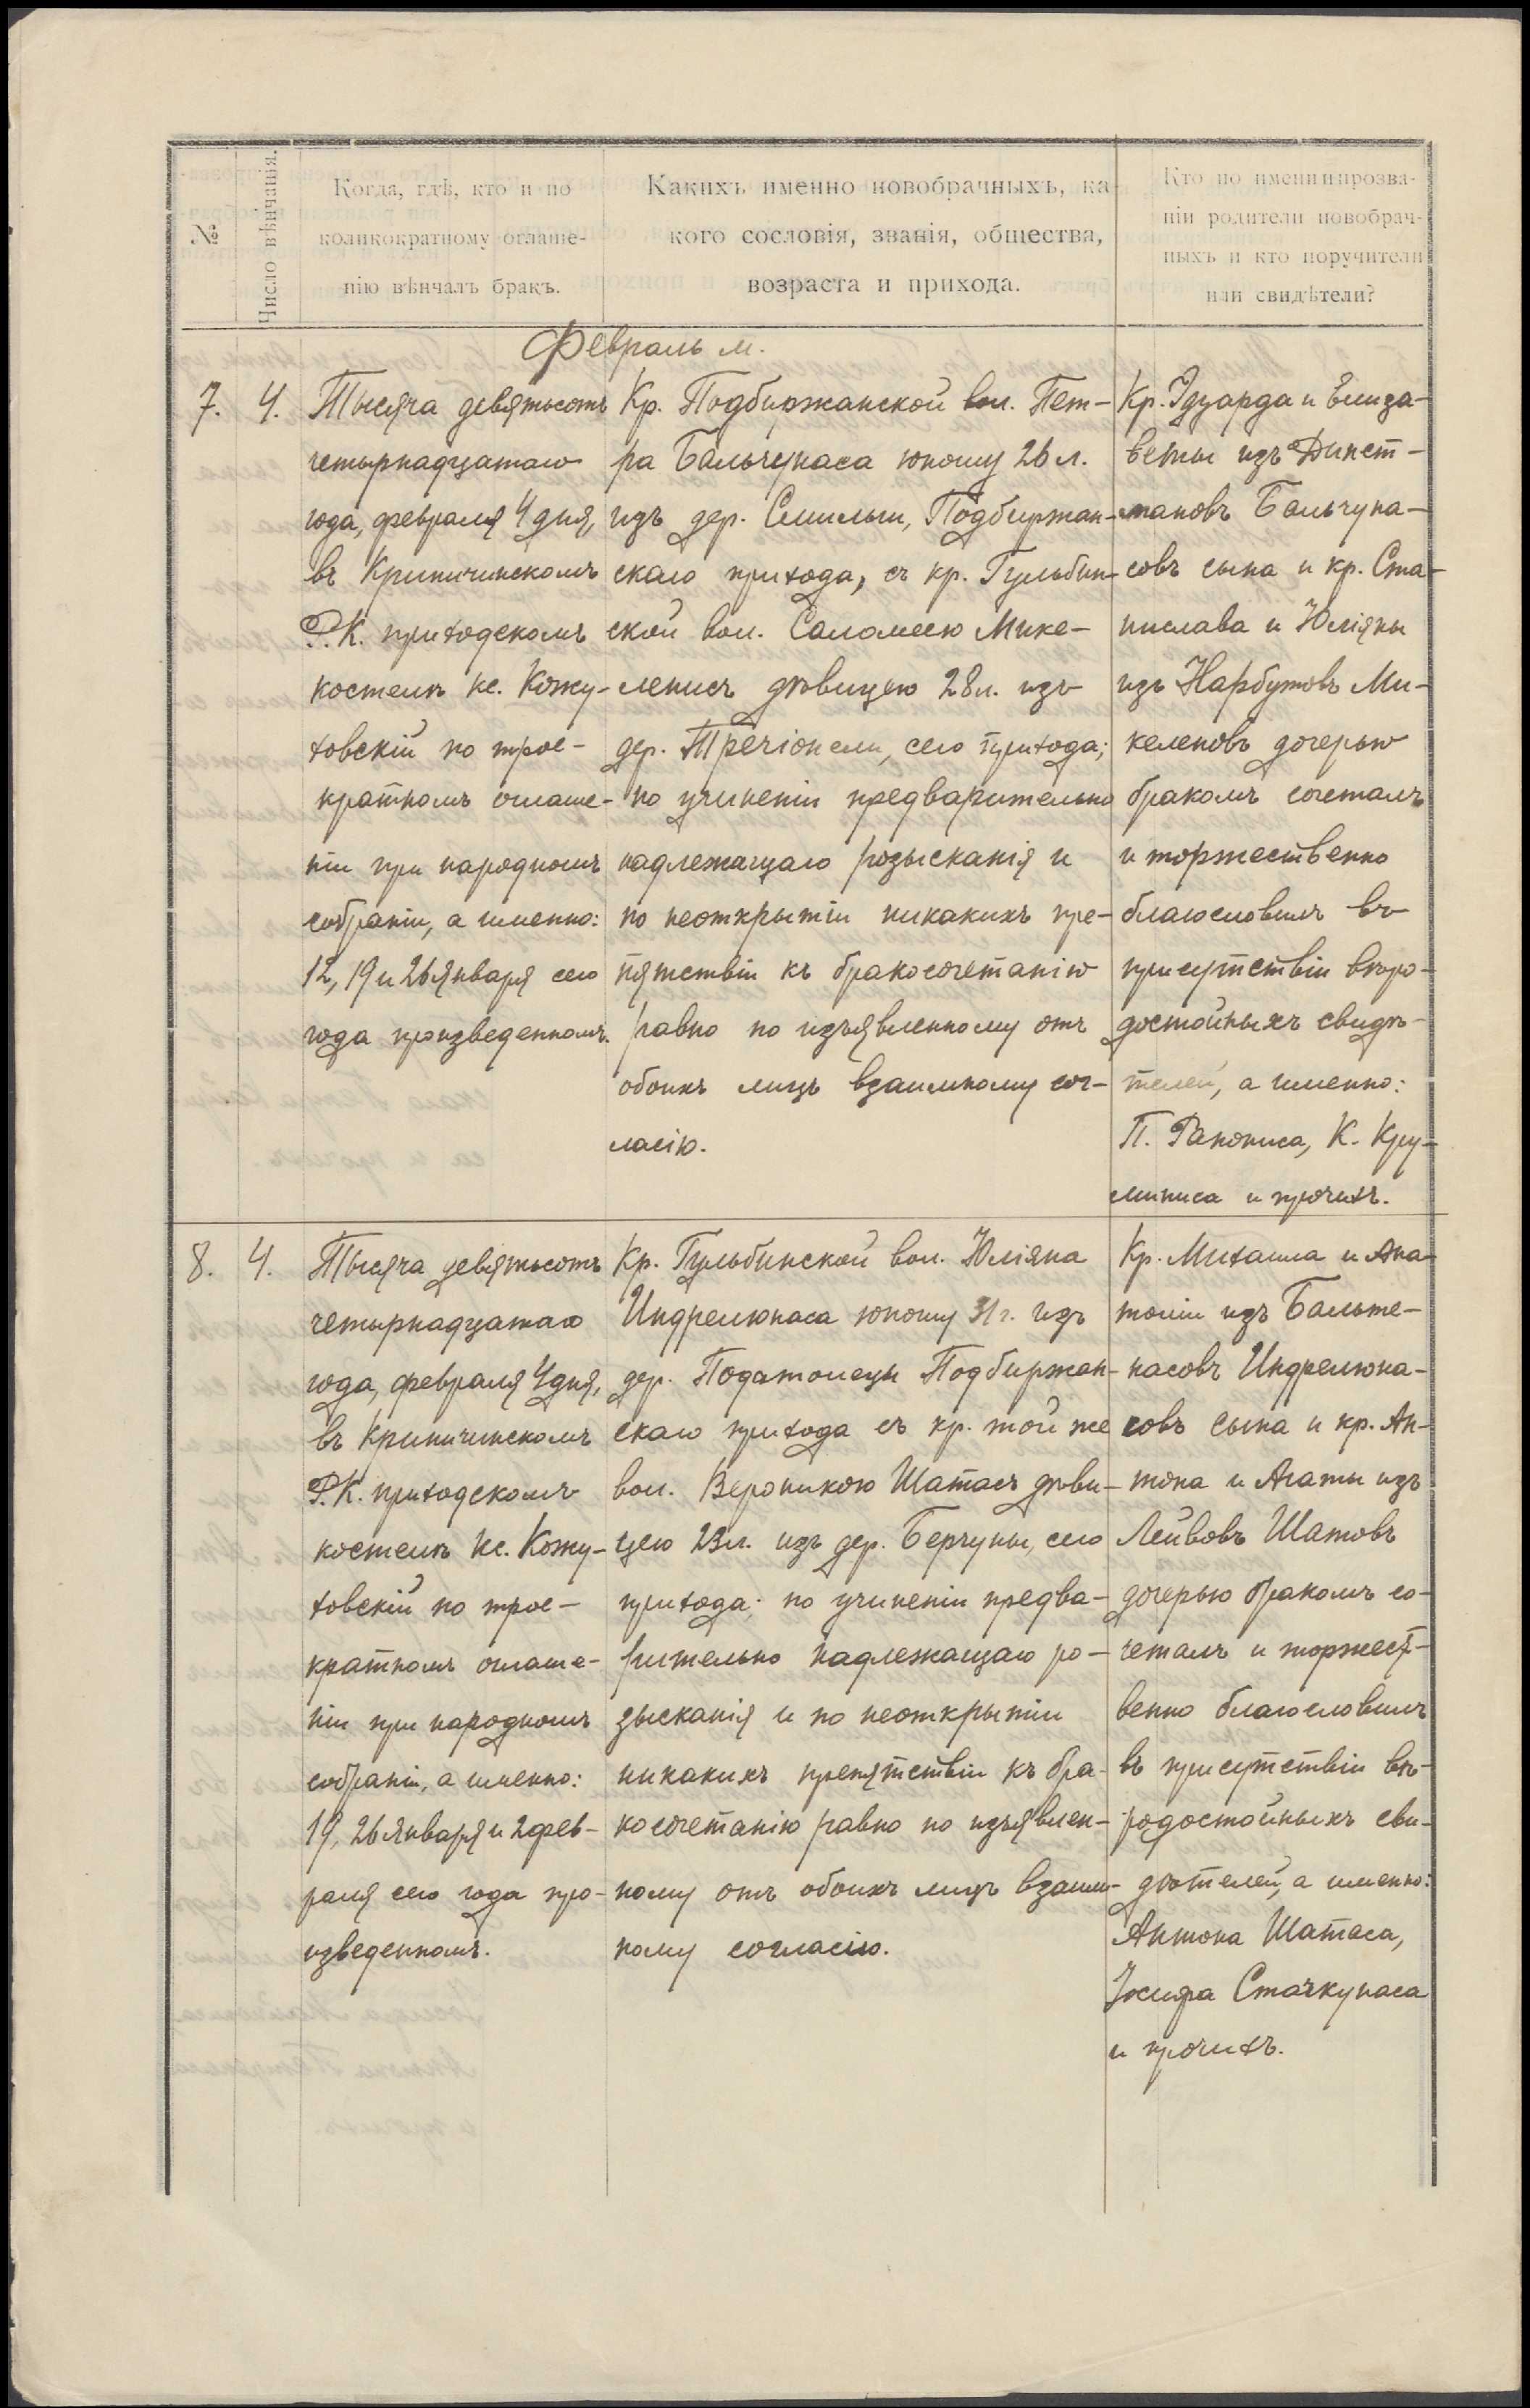 №
Число вѣнчанія.
Когда, гдѣ, кто и по
коликократному оглаше-
нію вѣнчалъ бракъ.
Какихъ именно новобрачныхъ, ка
кого сословія, званія, общества,
возраста и прихода.
Кто по имени и прозва-
ніи родители новобрач-
ныхъ и кто поручители
или свидѣтели?
Февраль м.
7.
4.
Тысяча девятьсотъ
четырнадцатаго
года, февраля 4 дня,
въ Криничинскомъ
Р.К. приходскомъ
костелѣ кс. Кожу-
ховскій по трое-
кратномъ оглаше-
ніи при народномъ
собраніи, а именно:
12, 19 и 26 января сего
года произведенномъ.
Кр. Подбиржанской вол. Пет-
ра Бальчунаса юношу 26 л.
изъ дер. Смильги, Подбиржан-
скаго прихода, съ кр. Гульбин-
ской вол. Саломеею Мике-
ленисъ дѣвицею 28 л. изъ
дер. Тречіонели, сего прихода;
по учиненіи предварительно
надлежащаго розысканія и
по неоткрытіи никакихъ пре-
пятствіи къ бракосочетанію
равно по изъявленному отъ
обоихъ лицъ взаимному сог-
ласію.
Кр. Эдуарда и Елиза-
веты изъ Динст-
мановъ Бальчуна-
совъ сына и кр. Ста-
нислава и Юліяны
изъ Нарбутовъ Ми-
келеновъ дочерью
бракомъ сочеталъ
и торжественно
благословилъ въ
присутствіи вѣро-
достойныхъ свидѣ-
телей, а именно:
П. Рапониса, К. Кру-
миниса и прочихъ.
8.
4.
Тысяча девятьсотъ
четырнадцатаго
года, февраля 4 дня,
въ Криничинскомъ
Р.К. приходскомъ
костелѣ кс. Кожу-
ховскій по трое-
кратномъ оглаше-
ніи при народномъ
собраніи, а именно:
19, 26 января и 2 фев-
раля сего года про-
изведенномъ.
Кр. Гульбинской вол. Юліяна
Индрелюнаса юношу 31 г. изъ
дер. Податолецы Подбиржан-
скаго прихода съ кр. той же
вол. Вероникою Шатасъ дѣви-
цею 23 л. изъ дер. Берчуны, сего
прихода; по учиненіи предва-
рительно надлежащаго ро-
зысканія и по неоткрытіи
никакихъ препятствіи къ бра-
косочетанію равно по изъявлен-
ному отъ обоихъ лицъ взаим-
ному согласію.
Кр. Михаила и Ана-
толіи изъ Бальте-
насовъ Индрелюна-
совъ сына и кр. Ан-
тона и Агаты изъ
Лейвовъ Шатовъ
дочерью бракомъ со-
четалъ и торжест-
венно благословилъ
въ присутствіи вѣ-
родостойныхъ сви-
дѣтелей, а именно:
Антона Шатаса,
Іосифа Стачкунаса
и прочихъ.